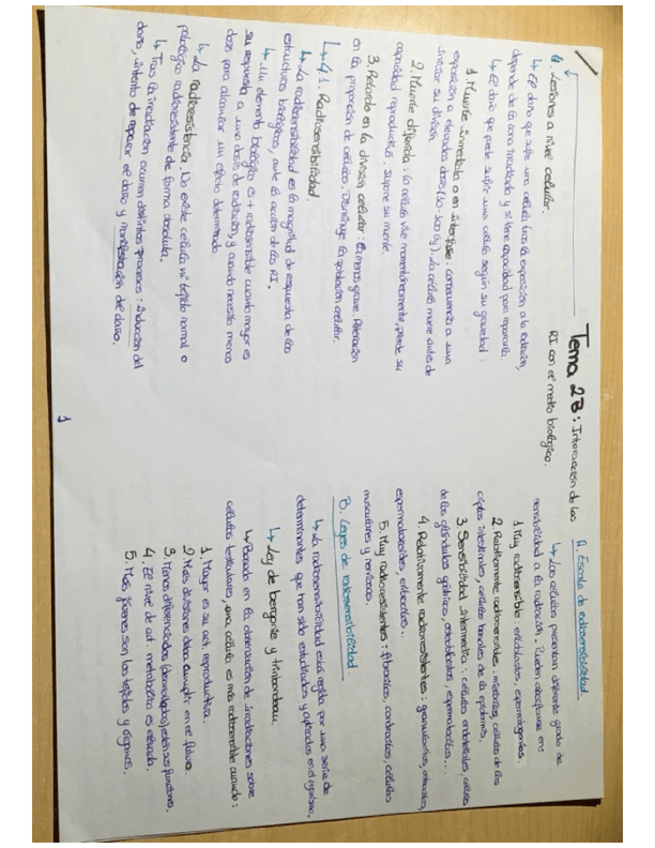 Tema 2B: Interacción de las
RI con el medio biológico.
4. Lesiones a nivel celular.
↳ El daño que sufre una célula tras la exposición a la radiación,
depende de la zona irradiada y si tiene capacidad para repararla.
↳ El daño que puede sufrir una célula según su gravedad:
1. Muerte inmediata o en interfase: consecuencia a una
exposición a elevadas dosis (10-100 Gy). La célula muere antes de
iniciar su división
2. Muerte diferida: la célula vive momentáneamente, pierde su
capacidad reproductiva. Supone su muerte.
3. Retardo en la división celular: la menos grave. Alteración
en la proporción de células. Disminuye la población celular.
↳ 4.1. Radiosensibilidad
↳ La radiosensibilidad es la magnitud de respuesta de las
estructuras biológicas, ante la acción de las RI.
↳ Un elemento biológico es + radiosensible cuanto mayor es
su respuesta a una dosis de radiación, y cuando necesita menos
dosis para alcanzar un efecto determinado.
↳ La radioresistencia. No existe célula ni tejido normal o
patológico radioresistente de forma absoluta.
↳ Tras la irradiación ocurren distintos procesos: inducción del
daño, intento de reparar el daño y manifestación del daño.
1
A. Escala de radiosensibilidad.
↳ Las células presentan diferente grado de
sensibilidad a la radiación. Pueden clasificarse en:
1. Muy radiosensible: eritroblastos, espermatogonias.
2. Relativamente radiosensibles: mielocitos, células de las
criptas intestinales, células basales de la epidermis.
3. Sensibilidad intermedia: células endoteliales, células
de las glándulas gástricas, osteoblastos, espermatocitos...
4. Relativamente radioresistentes: granulocitos, osteocitos,
espermatozoides, eritrocitos..
5. Muy radioresistentes: fibrocitos, condrocitos, células
musculares y nerviosas.
B. Leyes de radiosensibilidad.
↳ La radiosensibilidad está regida por una serie de
determinantes que han sido estudiados y aplicados en el organismo.
↳ Ley de bergonie y trinbondeau.
↳ Basada en la observación de irradiaciones sobre
células testiculares, una célula es más radiosensible cuando:
1. Mayor es su act. reproductiva.
2. Más divisiones deba cumplir en el futuro.
3. Menos diferenciadas (desarrolladas) estén sus funciones.
4. El nivel de act. metabólica es elevada.
5. Más jóvenes son los tejidos y órganos.